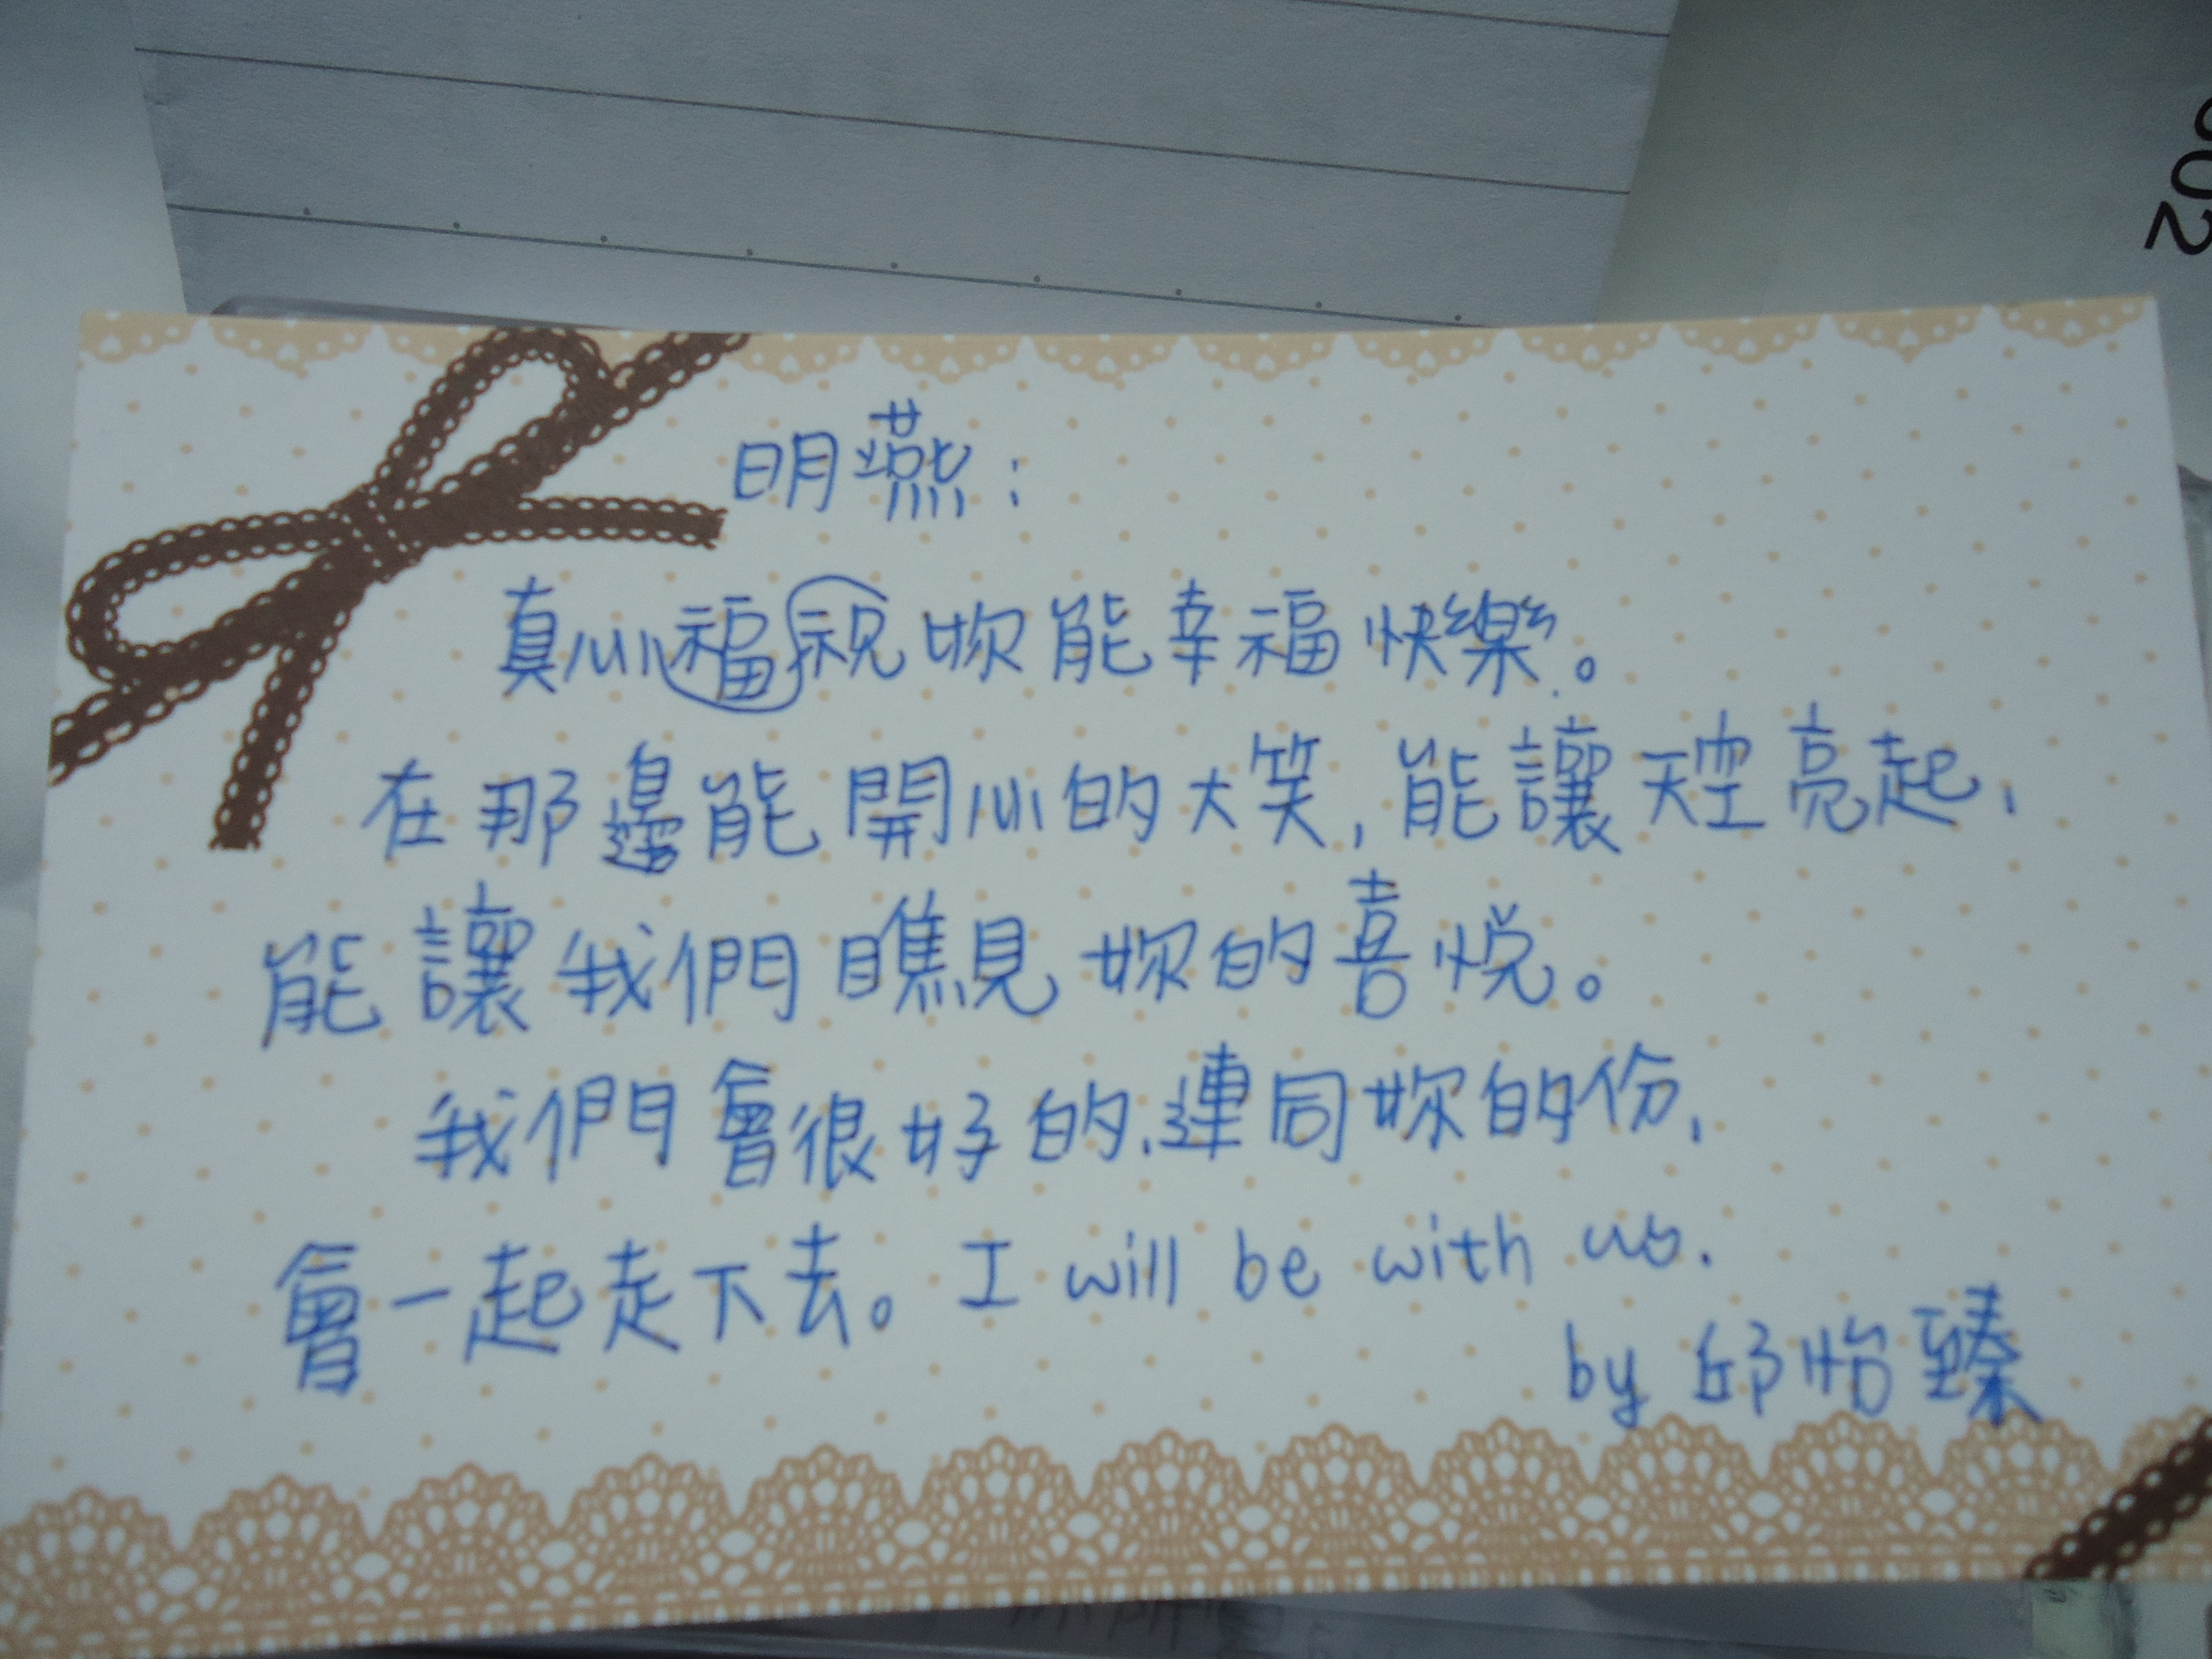 002
明燕：
真心福祝妳能幸福快樂。
在那邊能開心的大笑，能讓天空亮起，
能讓我們瞧見妳的喜悅。
我們會很好的，連同妳的份，
會一起走下去。I will be with us.
by 邱怡臻